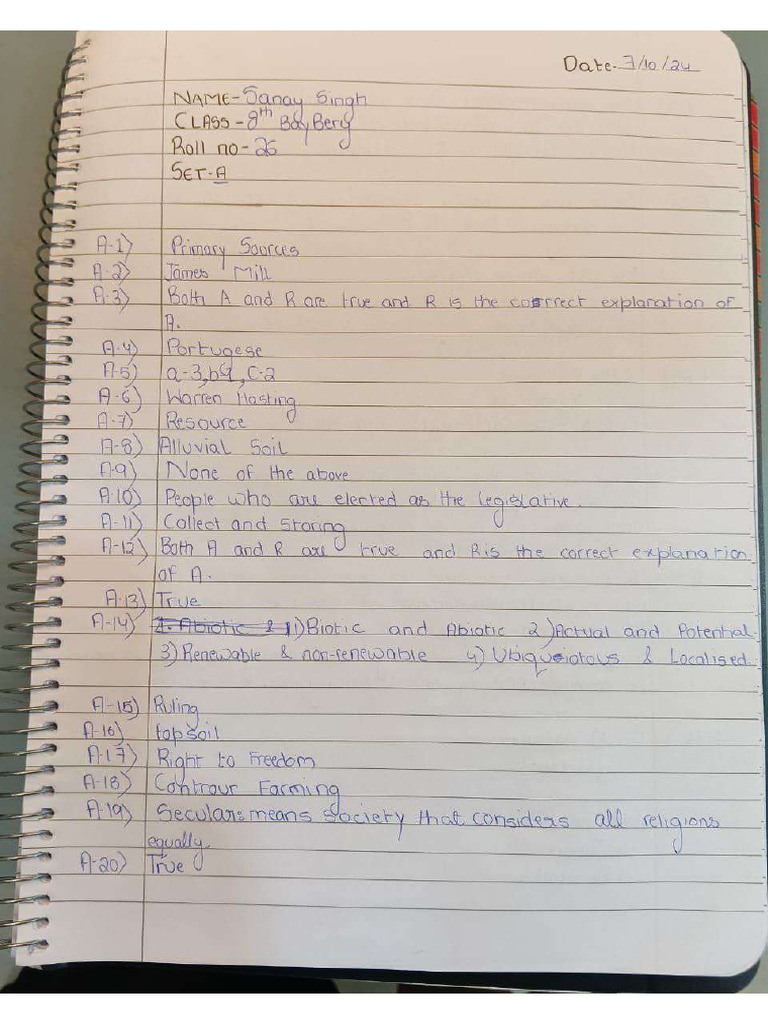 Date- 7/10/24
NAME- Sanay Singh
CLASS - 8th BayBery
Roll no - 26
SET-A
A-1) Primary Sources
A-2) James Mill
A-3) Both A and R are true and R is the correct explanation of
A.
A-4) Portugese
A-5) a-3, b-1, c-2
A-6) Warren Hasting
A-7) Resource
A-8) Alluvial Soil
A-9) None of the above
A-10) People who are elected as the legislative.
A-11) Collect and storing
A-12) Both A and R are true and R is the correct explanation
of A.
A-13) True
A-14) 1) Biotic and Abiotic 2) Actual and Potential
3) Renewable & non-renewable 4) Ubiqueiotous & Localised.
A-15) Ruling
A-16) topsoil
A-17) Right to Freedom
A-18) Controur Farming
A-19) Seculars means society that considers all religions
equally.
A-20) True